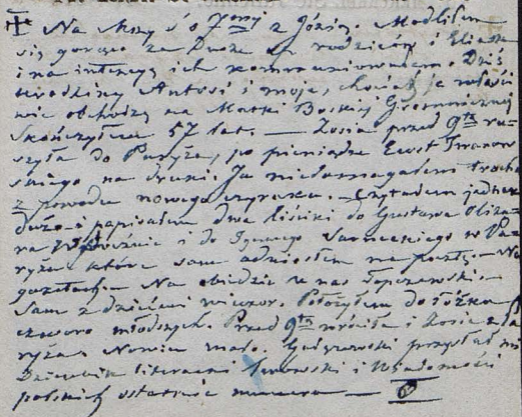 Na Mszy ś o 7mej z Józią. Modliłem
się gorąco za Dusze śp rodziców i Elizki
i na intencyą ich kommuniowałem. Dziś
urodziny Antosi i moje, chociaż je właści-
wie obchodzę na Matki Boskiej Gromnicznej
Skończyłem 57 lat. — Zosia przed 9tą ru-
szyła do Paryża, po pieniądze Ewst. Iwanow-
skiego na druki. Ja niedomagałem trochę
z powodu nowego czyraku. — Czytałem jednak
dużo i napisałem dwa liściki do Gustawa Oliza-
ra w i do Ignacego w Pa-
ryżu które sam odniosłem na pocztę. — Na
gazetach. Na obiedzie u nas Topczewski. —
Sam z dziećmi wieczor. Położyłem do łóżka
czworo młodszych. Przed 9tą wróciła i Zosia z Pa-
ryża. Nowin mało. przysłał mi
Dziennik literacki lwowski i Wiadomości
polskich ostatnie numera —